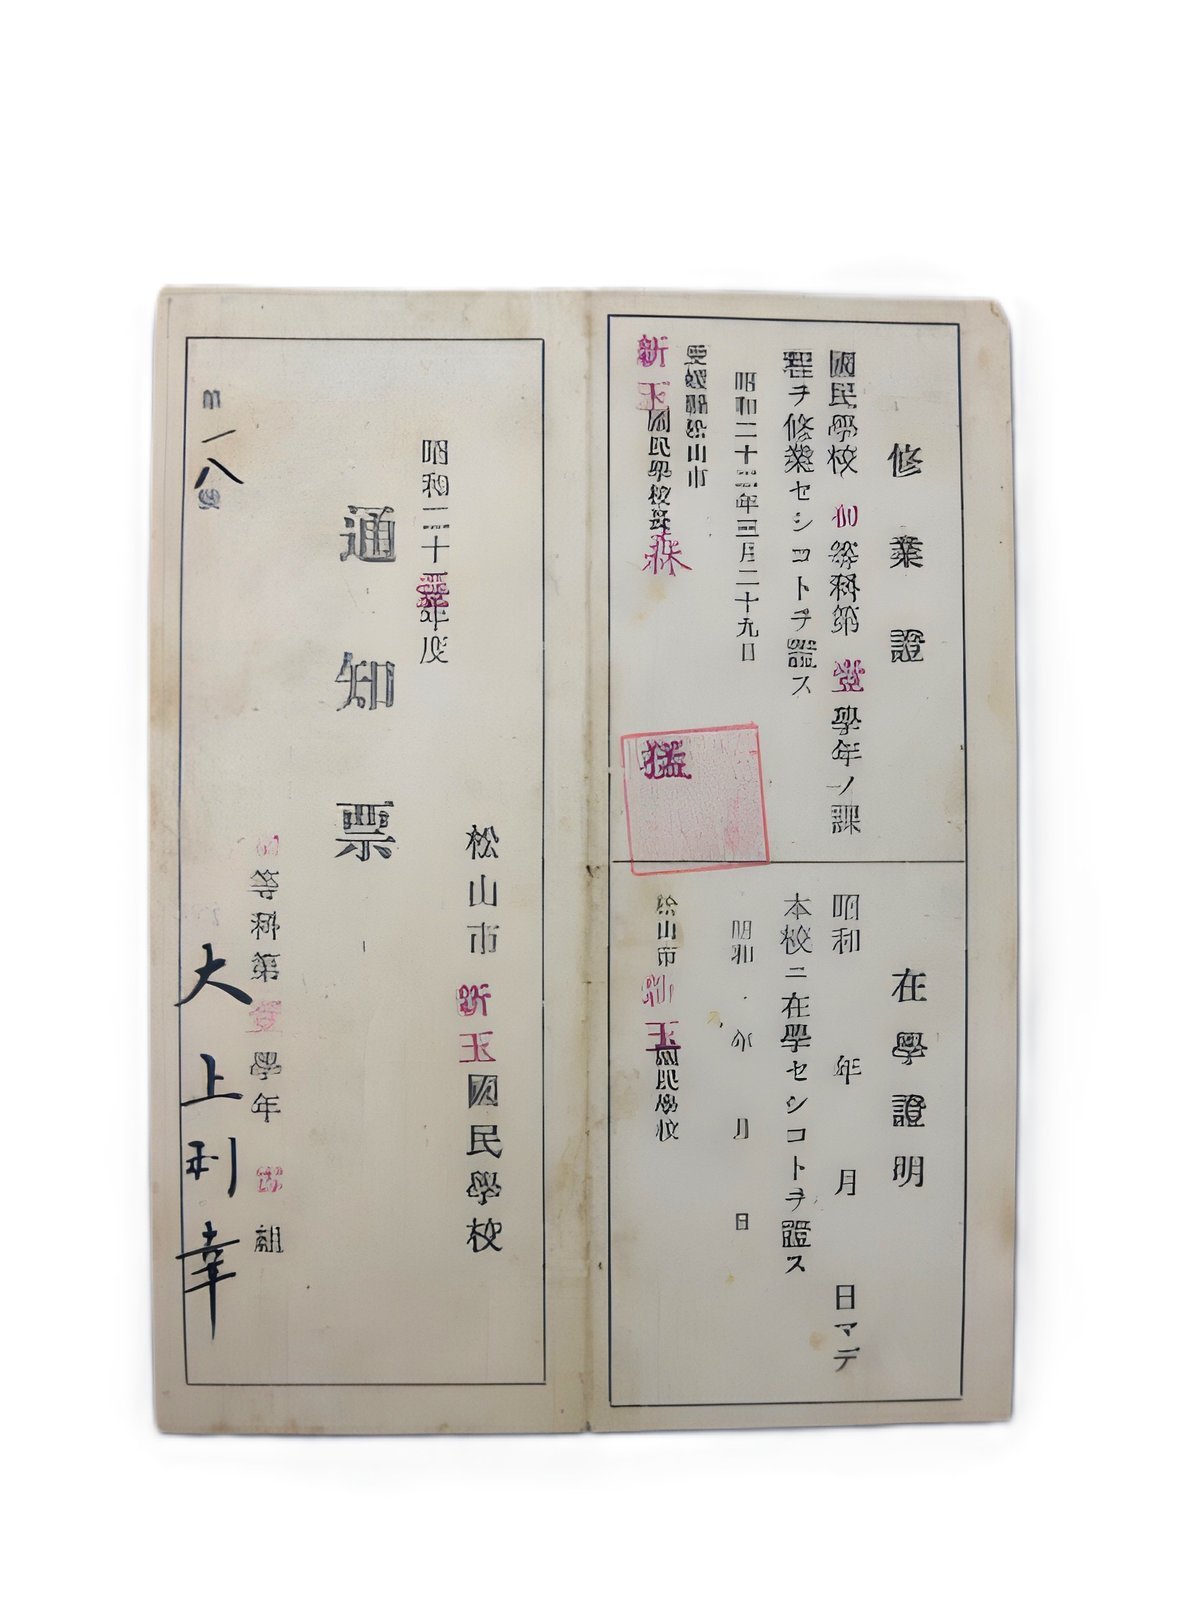 修業證
國民學校初等科第壹學年ノ課
程ヲ修業セシコトヲ證ス
昭和二十三年三月二十九日
愛媛縣松山市
新玉國民學校長 森 猛
在學證明
昭和 年 月 日マデ
本校ニ在學セシコトヲ證ス
昭和 年 月 日
松山市新玉國民學校
松山市新玉國民學校
昭和二十 年度
通知票
初等科第壹學年 組
大上利幸
一八